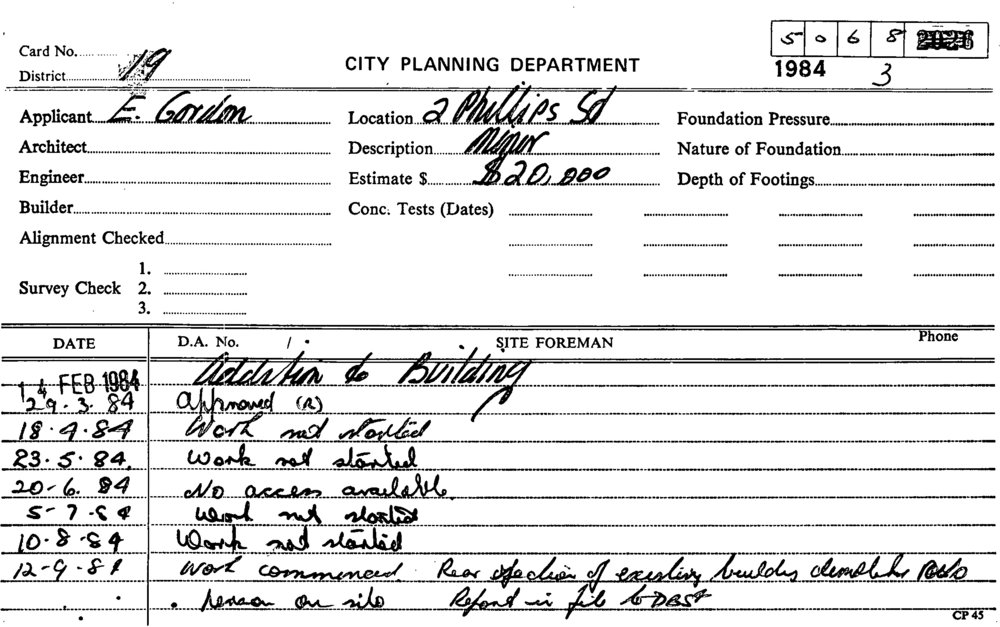 5 0 6 8
Card No.
District 19
CITY PLANNING DEPARTMENT
1984 3
Applicant E. Gordon
Location 2 Phillips Sd
Foundation Pressure
Architect
Description Minor
Nature of Foundation
Engineer
Estimate $ $20,000
Depth of Footings
Builder
Conc. Tests (Dates)
Alignment Checked
1.
Survey Check 2.
3.
DATE D.A. No. / SITE FOREMAN Phone
14 FEB 1984 Addition to Building
29.3.84 Approved (R)
18.4.84 Work not started
23.5.84. Work not started
20-6.84 No access available.
5-7-84 Work not started
10-8-84 Work not started
12-9-84 Work commenced. Rear of existing building
person on site Report in file to
CP 45